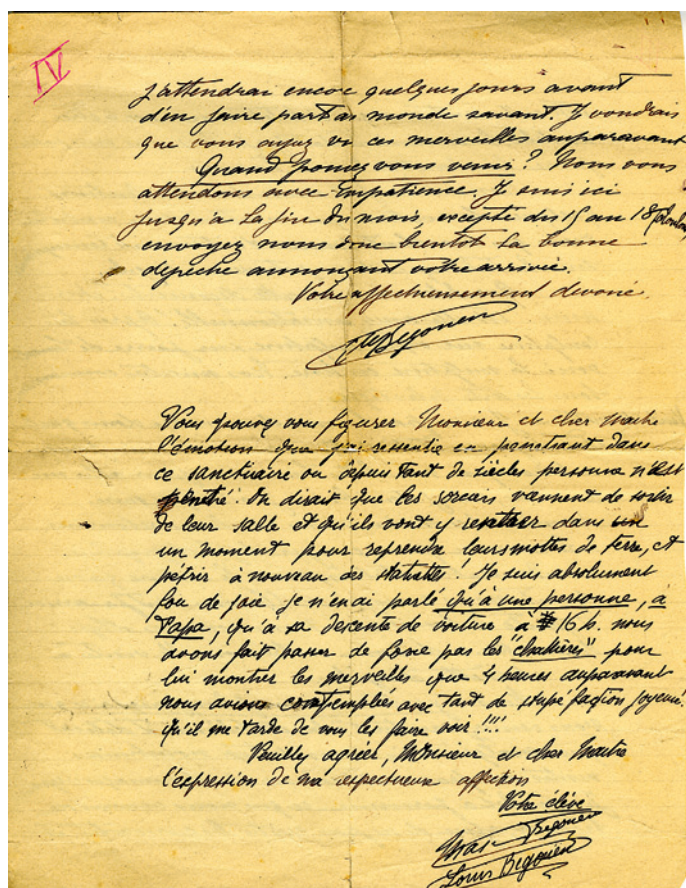 IV
J'attendrai encore quelques jours avant
d'en faire part au monde savant. Je voudrais
que vous ayez vu ces merveilles auparavant
Quand pouvez vous venir ? Nous vous
attendons avec impatience. Je suis ici
jusqu'à la fin du mois, excepté du 15 au 18
envoyez nous donc bientot la bonne
depeche annonçant votre arrivée.
Votre affectueusement devoué.
Cte Begouen
Vous pouvez vous figurer Monsieur et cher Maitre
l'émotion que j'ai ressentie en penetrant dans
ce sanctuaire ou depuis tant de siècles personne n'est
pénétré. On dirait que les sorciers viennent de sortir
de leur salle et qu'ils vont y rentrer dans un
un moment pour reprendre leurs mottes de terre, et
pétrir à nouveau des statuettes ! Je suis absolument
fou de joie je n'en ai parlé qu'à une personne, à
Papa, qu'à sa descente de voiture à 16 h. nous
avons fait passer de force par les "chatières" pour
lui montrer les merveilles que 4 heures auparavant
nous avions contemplées avec tant de stupéfaction joyeuse.
qu'il me tarde de vous les faire voir !!!
Veuillez agréer, Monsieur et cher Maitre
l'expression de ma respectueuse affection
Votre élève
Max Begouen
Louis Begouen